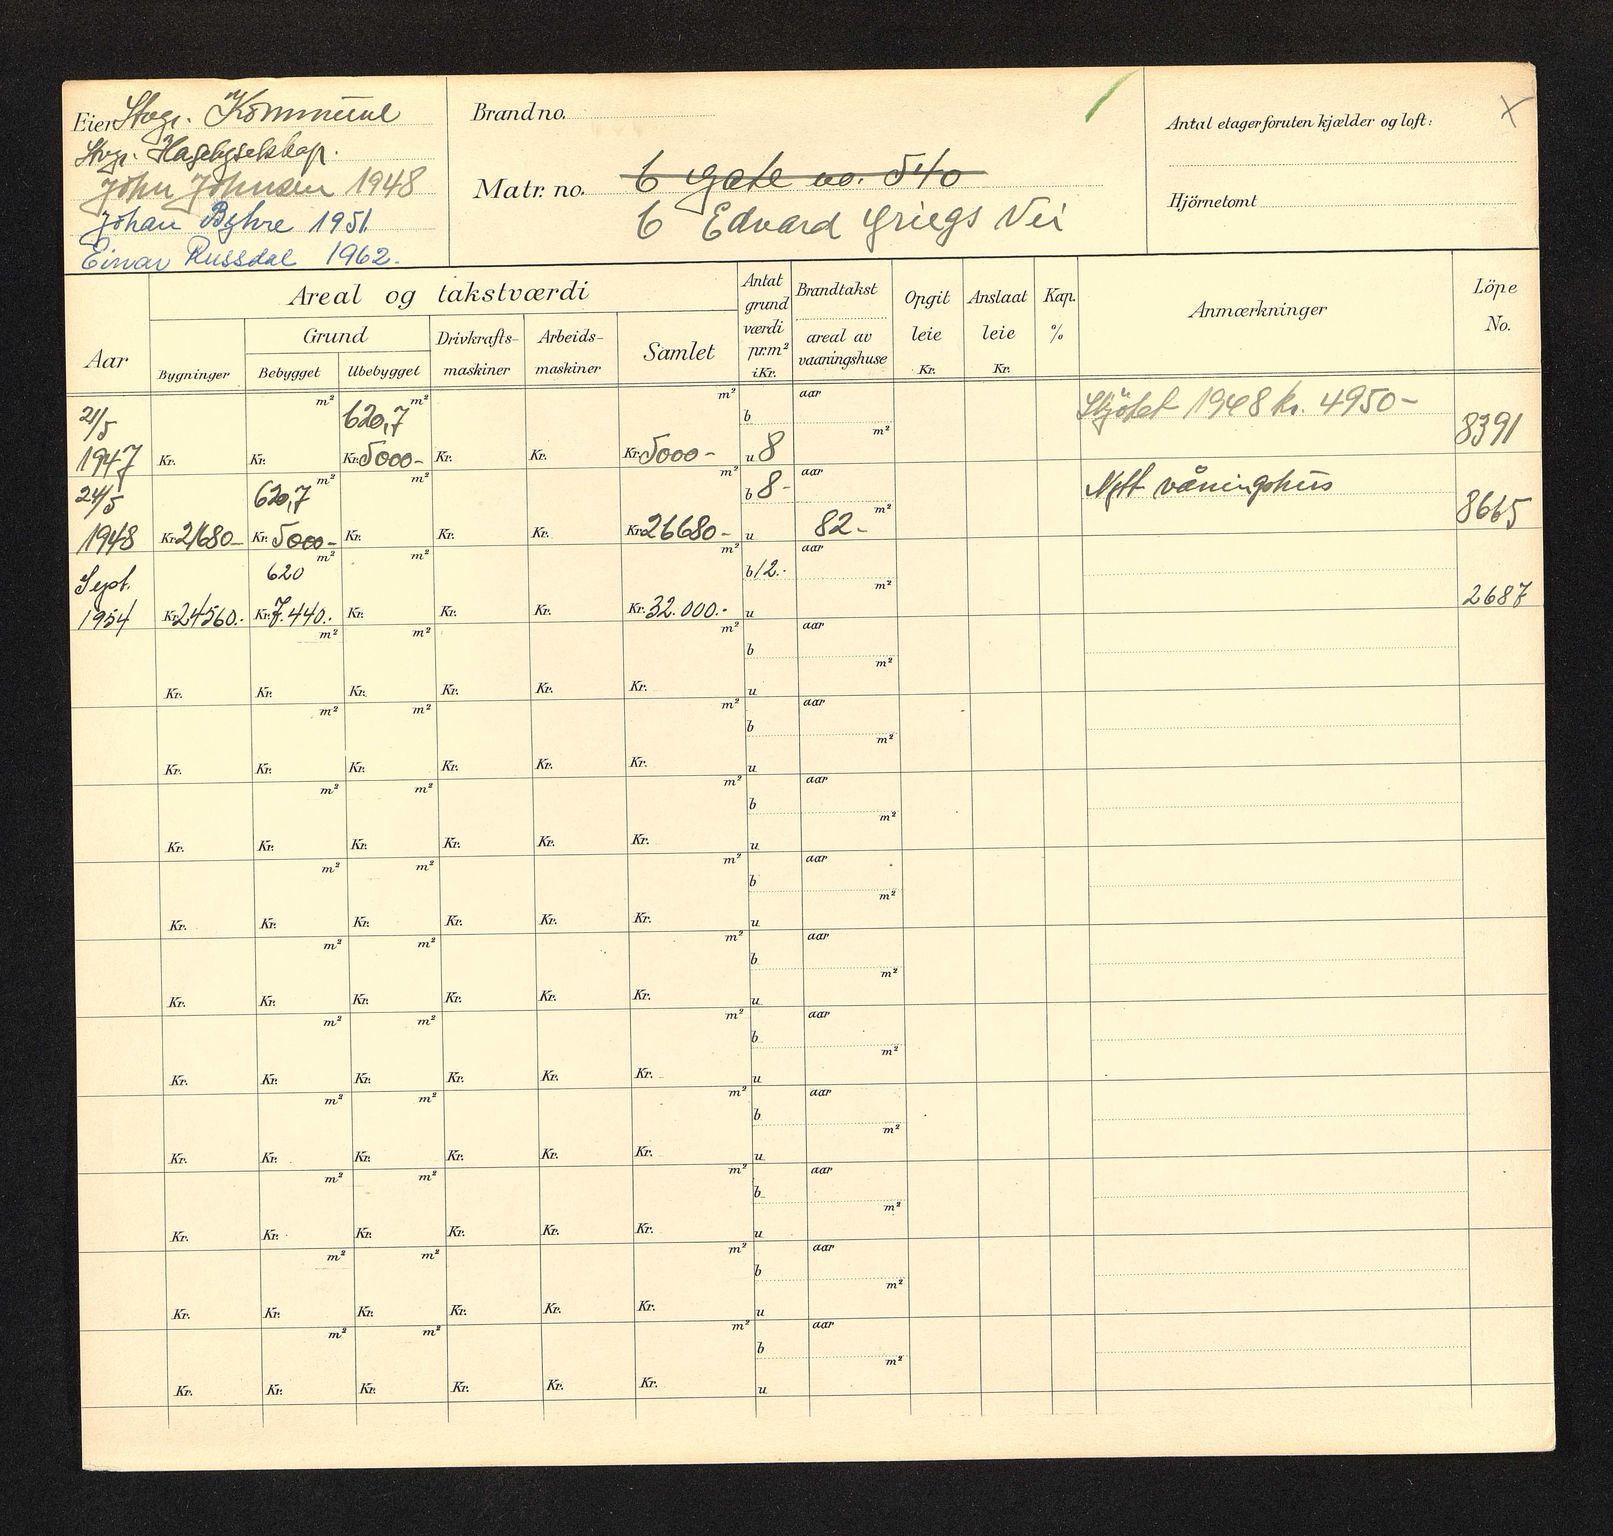 Eier Stvgr. Kommune
Stvgr. Hagebyselskap.
John Johnsen 1948
Johan Byhre 1951
Einar Russdal 1962.
Brand no.
Matr. no. 6 gate no. 540
6 Edvard Griegs Vei
Antal etager foruten kjælder og loft: X
Hjörnetomt
Aar
Areal og takstværdi
Bygninger
Grund
Bebygget
Ubebygget
Drivkrafts-
maskiner
Arbeids-
maskiner
Samlet
Antat
grund
værdi
pr. m²
i Kr.
Brandtakst
areal av
vaaningshuse
Opgit
leie
Kr.
Anslaat
leie
Kr.
Kap.
%
Anmærkninger
Löpe
No.
m² m² m² aar
21/5 620,7 b Skjötet 1948 kr. 4950-
m²
1947 Kr. Kr. Kr. 5000- Kr. Kr. Kr. 5000- u 8 8391
m² m² m² aar
24/5 620,7 b 8- Nytt våningshus
m²
1948 Kr. 21680- Kr. 5000- Kr. Kr. Kr. Kr. 26680- u 82- 8665
m² m² m² aar
Sept. 620 b 12.-
m²
1954 Kr. 24560.- Kr. 7.440.- Kr. Kr. Kr. Kr. 32.000.- u 2687
m² m² m² aar
b
m²
Kr. Kr. Kr. Kr. Kr. Kr. u
m² m² m² aar
b
m²
Kr. Kr. Kr. Kr. Kr. Kr. u
m² m² m² aar
b
m²
Kr. Kr. Kr. Kr. Kr. Kr. u
m² m² m² aar
b
m²
Kr. Kr. Kr. Kr. Kr. Kr. u
m² m² m² aar
b
m²
Kr. Kr. Kr. Kr. Kr. Kr. u
m² m² m² aar
b
m²
Kr. Kr. Kr. Kr. Kr. Kr. u
m² m² m² aar
b
m²
Kr. Kr. Kr. Kr. Kr. Kr. u
m² m² m² aar
b
m²
Kr. Kr. Kr. Kr. Kr. Kr. u
m² m² m² aar
b
m²
Kr. Kr. Kr. Kr. Kr. Kr. u
m² m² m² aar
b
m²
Kr. Kr. Kr. Kr. Kr. Kr. u